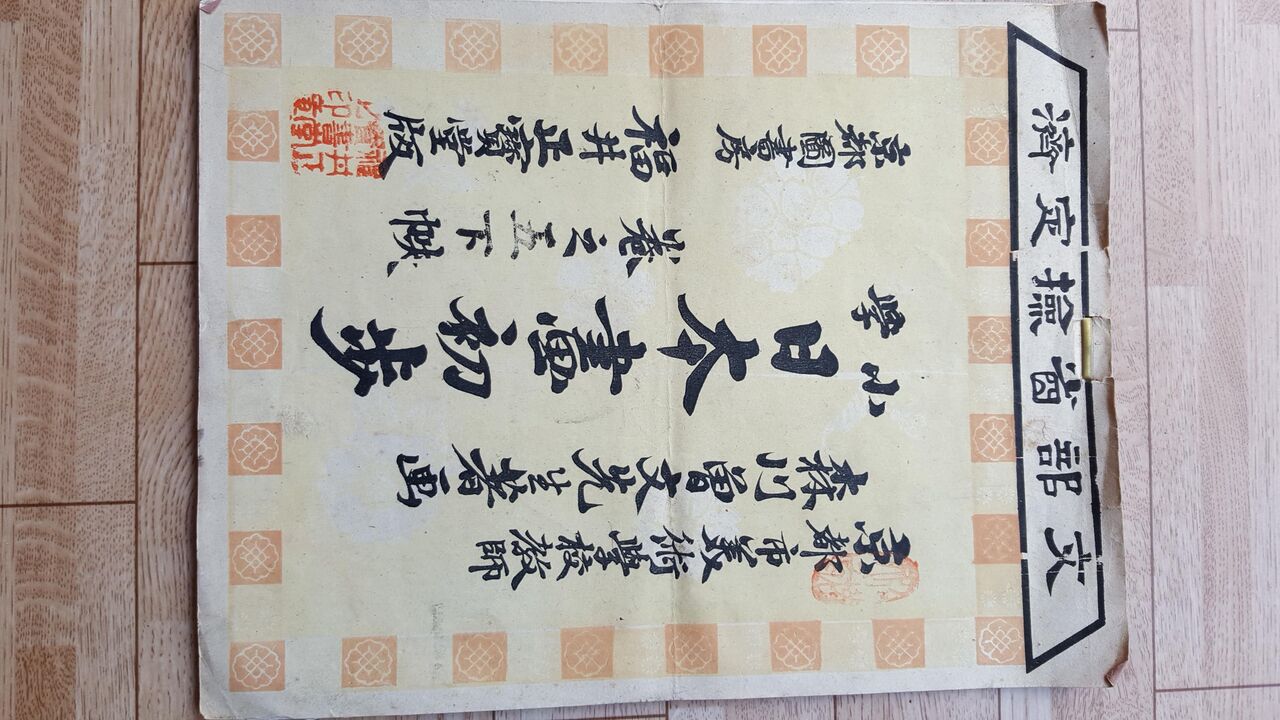 文部省撿定濟
京都市美術學校教師
森川曽文先生著画
小學
日本畫初歩
巻之五下帙
京都圖書房
福井正寶堂版